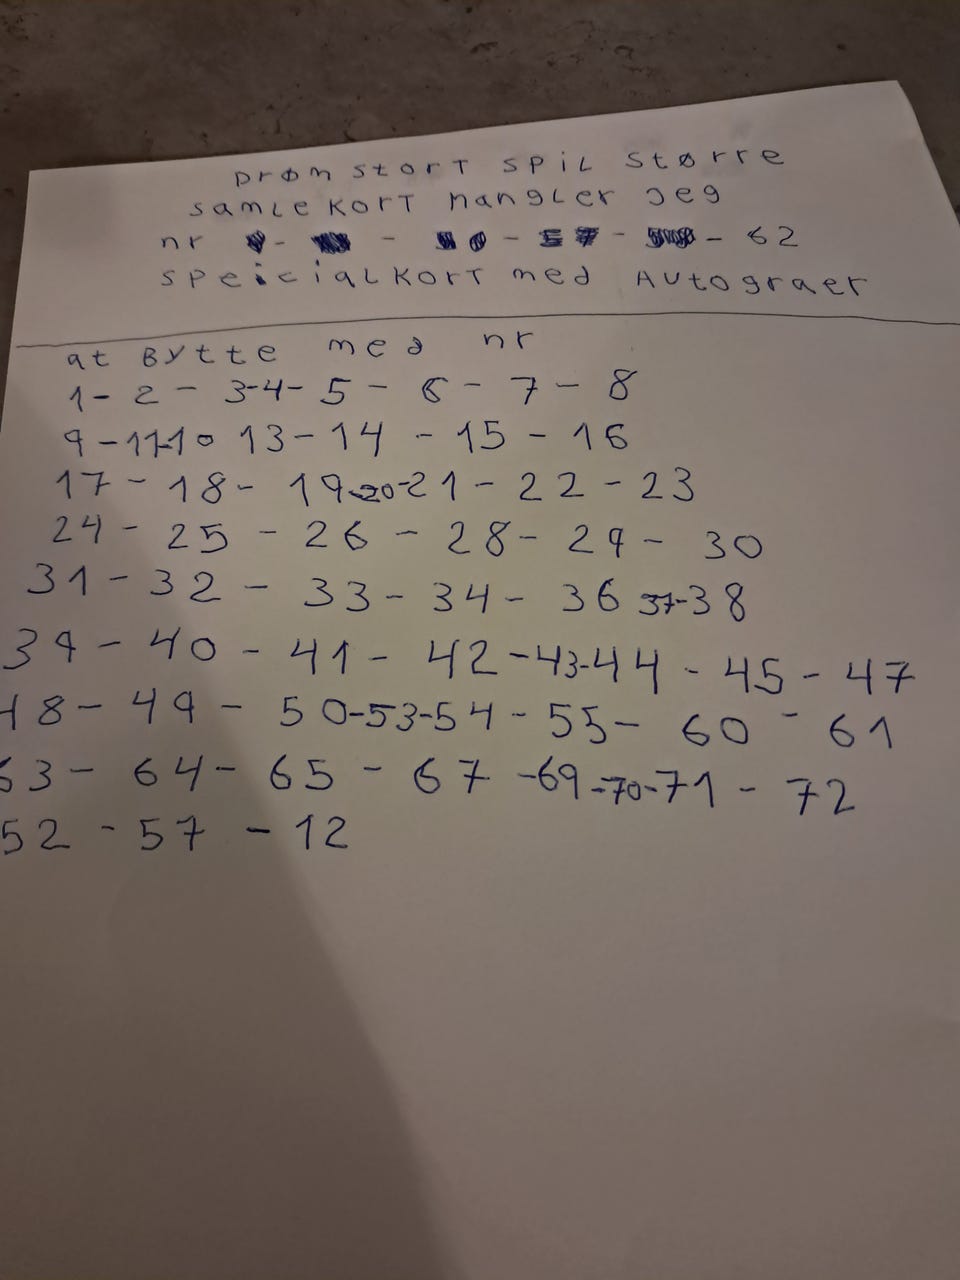 Drøm stort spil større
samle kort mangler jeg
nr - - - - 62
speicialkort med Autograer
at Bytte med nr
1- 2 - 3-4- 5 - 6 - 7 - 8
9 -11-10 13-14 - 15 - 16
17 - 18 - 19-20-21 - 22 - 23
24 - 25 - 26 - 28- 29 - 30
31 - 32 - 33 - 34 - 36 37-38
39 - 40 - 41 - 42 -43-44 - 45 - 47
48 - 49 - 50-53-54 - 55 - 60 - 61
63 - 64 - 65 - 67 -69-70-71 - 72
52 - 57 - 12